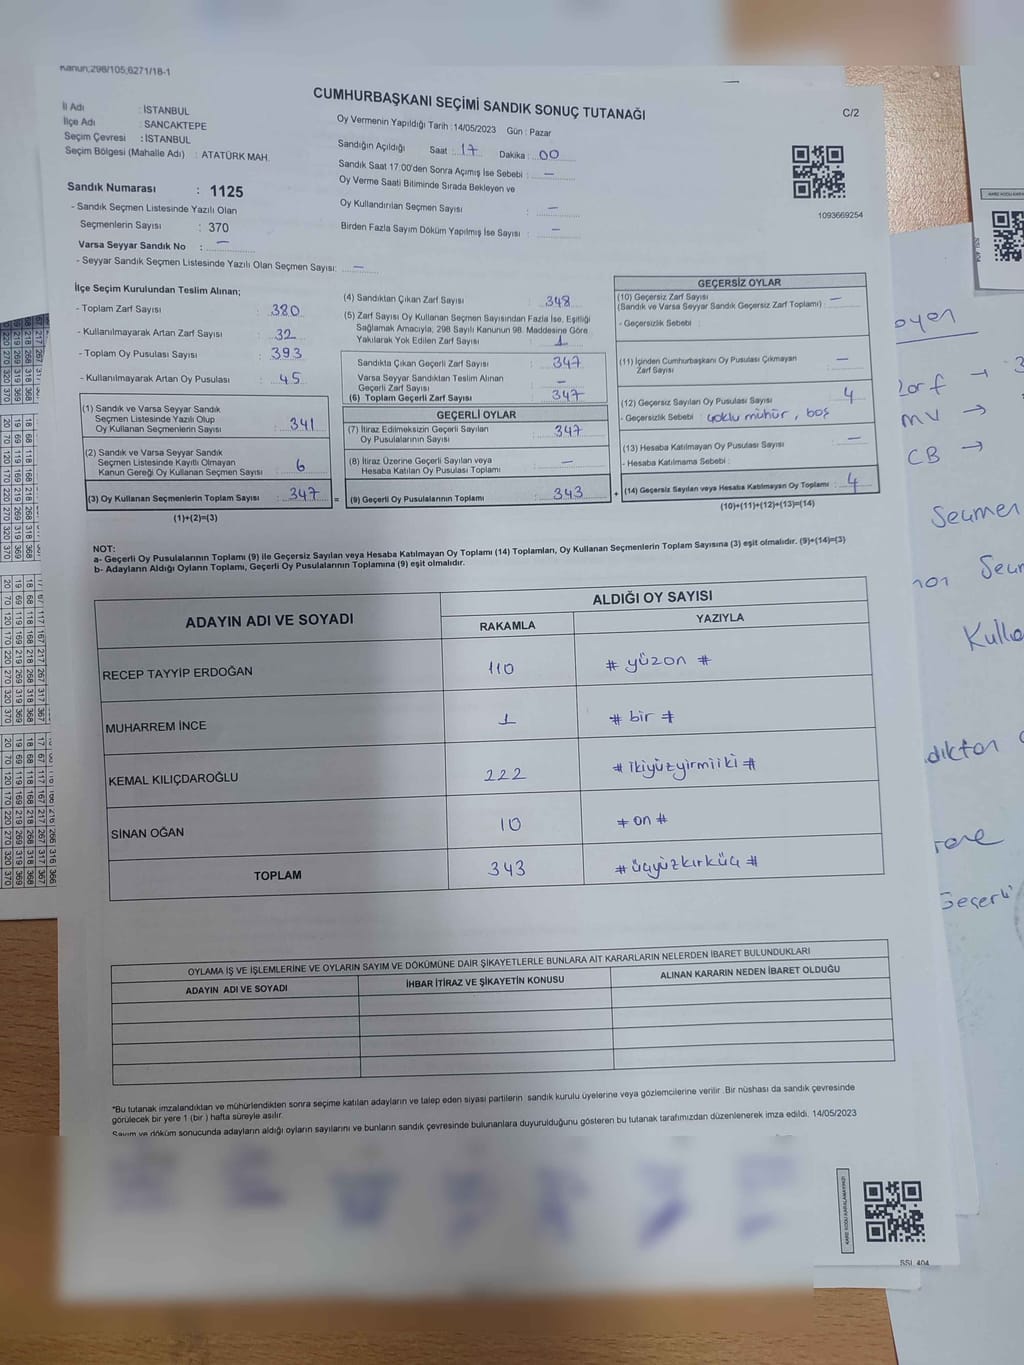 Kanun;298/105;6271/18-1
CUMHURBAŞKANI SEÇİMİ SANDIK SONUÇ TUTANAĞI
C/2
İl Adı : İSTANBUL
İlçe Adı : SANCAKTEPE
Seçim Çevresi : İSTANBUL
Seçim Bölgesi (Mahalle Adı) : ATATÜRK MAH.
Sandık Numarası : 1125
- Sandık Seçmen Listesinde Yazılı Olan
Seçmenlerin Sayısı : 370
Varsa Seyyar Sandık No : —
- Seyyar Sandık Seçmen Listesinde Yazılı Olan Seçmen Sayısı: —
Oy Vermenin Yapıldığı Tarih :14/05/2023 Gün : Pazar
Sandığın Açıldığı Saat : 17 Dakika : 00
Sandık Saat 17:00'den Sonra Açımış İse Sebebi : —
Oy Verme Saati Bitiminde Sırada Bekleyen ve
Oy Kullandırılan Seçmen Sayısı : —
Birden Fazla Sayım Döküm Yapılmış İse Sayısı : —
1093669254
İlçe Seçim Kurulundan Teslim Alınan;
- Toplam Zarf Sayısı : 380
- Kullanılmayarak Artan Zarf Sayısı : 32
- Toplam Oy Pusulası Sayısı : 393
- Kullanılmayarak Artan Oy Pusulası : 45
(1) Sandık ve Varsa Seyyar Sandık
Seçmen Listesinde Yazılı Olup
Oy Kullanan Seçmenlerin Sayısı : 341
(2) Sandık ve Varsa Seyyar Sandık
Seçmen Listesinde Kayıtlı Olmayan
Kanun Gereği Oy Kullanan Seçmen Sayısı : 6
(3) Oy Kullanan Seçmenlerin Toplam Sayısı : 347 =
(1)+(2)=(3)
(4) Sandıktan Çıkan Zarf Sayısı : 348
(5) Zarf Sayısı Oy Kullanan Seçmen Sayısından Fazla İse, Eşitliği
Sağlamak Amacıyla; 298 Sayılı Kanunun 98. Maddesine Göre
Yakılarak Yok Edilen Zarf Sayısı : 1
Sandıkta Çıkan Geçerli Zarf Sayısı : 347
Varsa Seyyar Sandıktan Teslim Alınan
Geçerli Zarf Sayısı : —
(6) Toplam Geçerli Zarf Sayısı : 347
GEÇERLİ OYLAR
(7) İtiraz Edilmeksizin Geçerli Sayılan
Oy Pusulalarının Sayısı : 347
(8) İtiraz Üzerine Geçerli Sayılan veya
Hesaba Katılan Oy Pusulası Toplamı : —
(9) Geçerli Oy Pusulalarının Toplamı : 343 +
GEÇERSİZ OYLAR
(10) Geçersiz Zarf Sayısı : —
(Sandık ve Varsa Seyyar Sandık Geçersiz Zarf Toplamı)
- Geçersizlik Sebebi :
(11) İçinden Cumhurbaşkanı Oy Pusulası Çıkmayan
Zarf Sayısı : —
(12) Geçersiz Sayılan Oy Pusulası Sayısı : 4
- Geçersizlik Sebebi : çoklu mühür, boş
(13) Hesaba Katılmayan Oy Pusulası Sayısı : —
- Hesaba Katılmama Sebebi :
(14) Geçersiz Sayılan veya Hesaba Katılmayan Oy Toplamı : 4
(10)+(11)+(12)+(13)=(14)
NOT:
a- Geçerli Oy Pusulalarının Toplamı (9) ile Geçersiz Sayılan veya Hesaba Katılmayan Oy Toplamı (14) Toplamları, Oy Kullanan Seçmenlerin Toplam Sayısına (3) eşit olmalıdır. (9)+(14)=(3)
b- Adayların Aldığı Oyların Toplamı, Geçerli Oy Pusulalarının Toplamına (9) eşit olmalıdır.
ADAYIN ADI VE SOYADI
ALDIĞI OY SAYISI
RAKAMLA YAZIYLA
RECEP TAYYİP ERDOĞAN 110 # yüzon #
MUHARREM İNCE 1 # bir #
KEMAL KILIÇDAROĞLU 222 # ikiyüzyirmiiki #
SİNAN OĞAN 10 # on #
TOPLAM 343 # üçyüzkırküç #
OYLAMA İŞ VE İŞLEMLERİNE VE OYLARIN SAYIM VE DÖKÜMÜNE DAİR ŞİKAYETLERLE BUNLARA AİT KARARLARIN NELERDEN İBARET BULUNDUKLARI
ADAYIN ADI VE SOYADI İHBAR İTİRAZ VE ŞİKAYETİN KONUSU ALINAN KARARIN NEDEN İBARET OLDUĞU
*Bu tutanak imzalandıktan ve mühürlendikten sonra seçime katılan adayların ve talep eden siyasi partilerin sandık kurulu üyelerine veya gözlemcilerine verilir. Bir nüshası da sandık çevresinde
görülecek bir yere 1 (bir ) hafta süreyle asılır.
Sayım ve döküm sonucunda adayların aldığı oyların sayılarını ve bunların sandık çevresinde bulunanlara duyurulduğunu gösteren bu tutanak tarafımızdan düzenlenerek imza edildi. 14/05/2023
KARE KODU KARALAMAYINIZ!
SSI 404
Zarf →
MV →
CB →
Seçmen